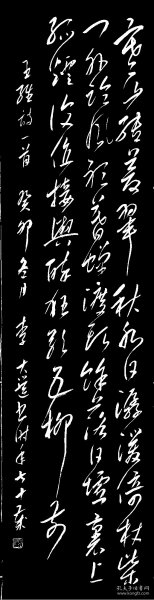 寒山转苍翠秋水日潺湲倚杖柴
门外临风听暮蝉渡头余落日墟里上
孤烟复值接舆醉狂歌五柳前
王维诗一首 癸卯冬月 李大运书 时年七十又